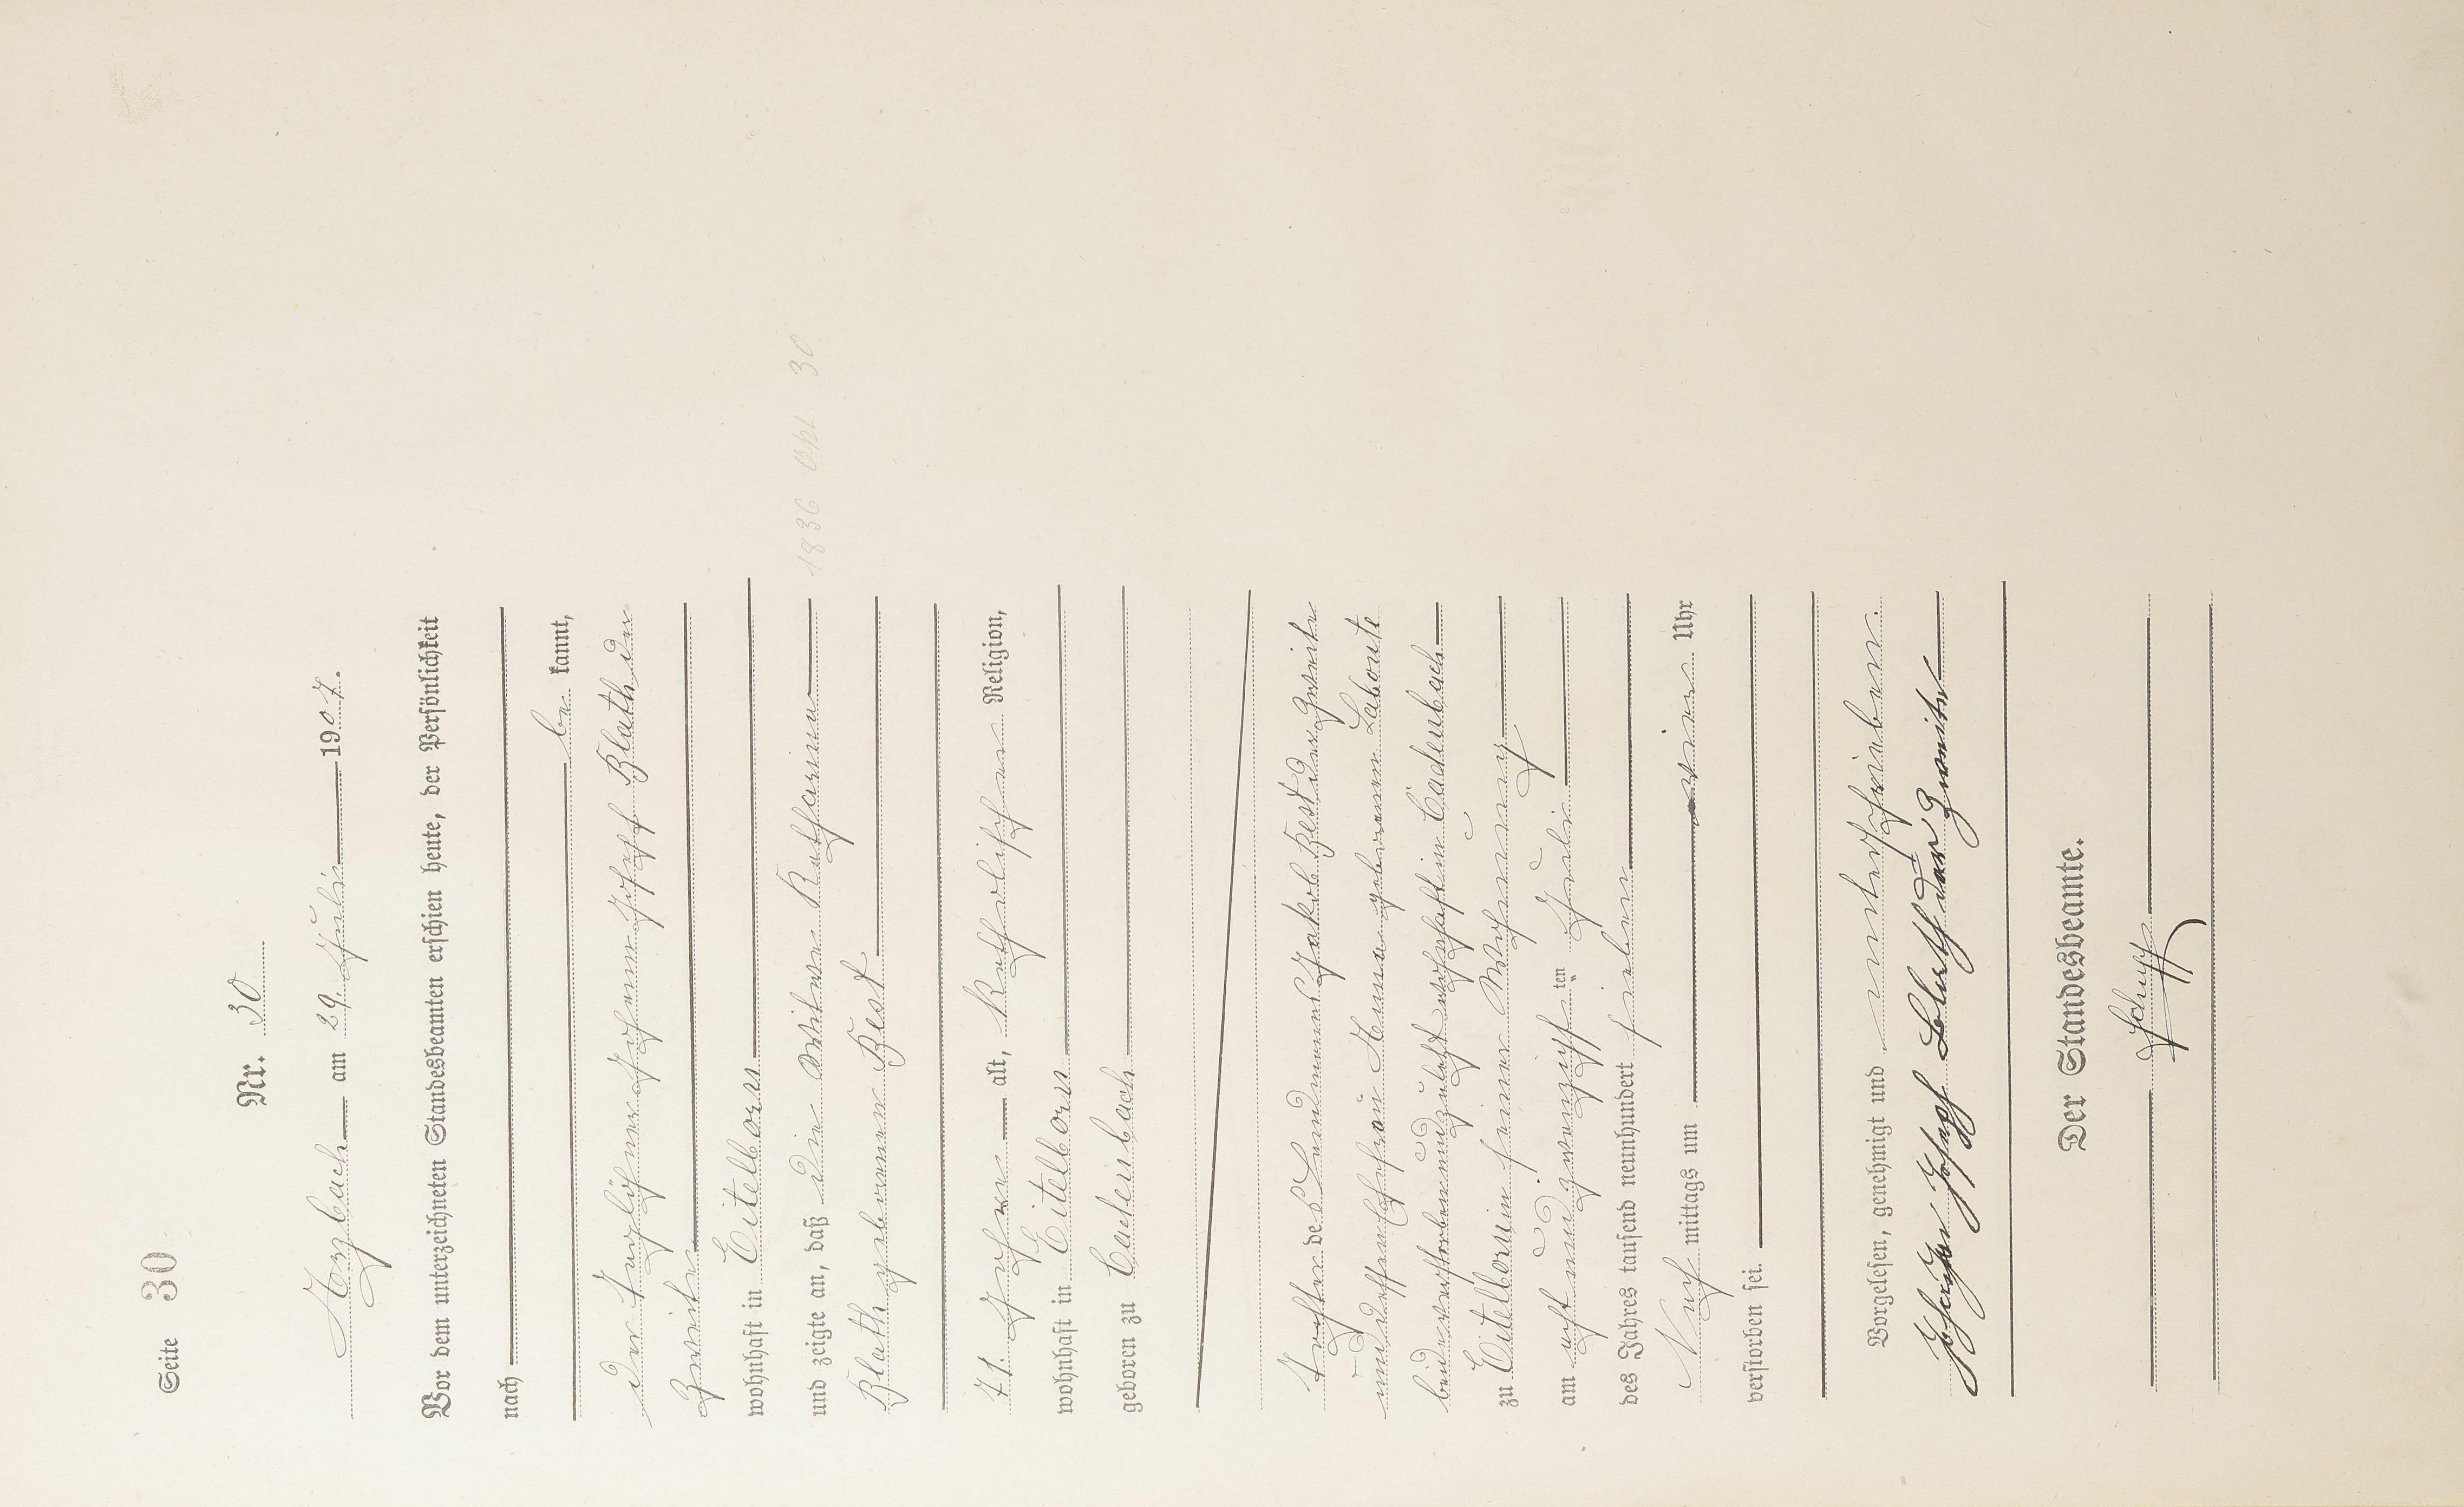 Seite 30
Nr. 30
Arzbach am 29. Juli 1907.
Vor dem unterzeichneten Standesbeamten erschien heute, der Persönlichkeit
nach
be kannt,
der Taglöhner Johann Josef Blath der
Zweite
wohnhaft in Eitelborn
und zeigte an, daß die Witwe Katharina
Blath geborenen Best
71 Jahre alt, katholischer Religion,
wohnhaft in Eitelborn
geboren zu Cadenbach
Tochter des Landmanns Jakob Best der Zweite
und dessen Ehefrau Anna geborenen Labonte
beide verstorben und zuletzt wohnhaft in Cadenbach
zu Eitelborn in seiner Wohnung
am acht und zwanzigsten Juli
des Jahres tausend neunhundert sieben
Nach mittags um vier Uhr
verstorben sei.
Vorgelesen, genehmigt und unterschrieben.
Johann Josef Blath der Zweite
Der Standesbeamte.
Schupp
1836 Okt 30